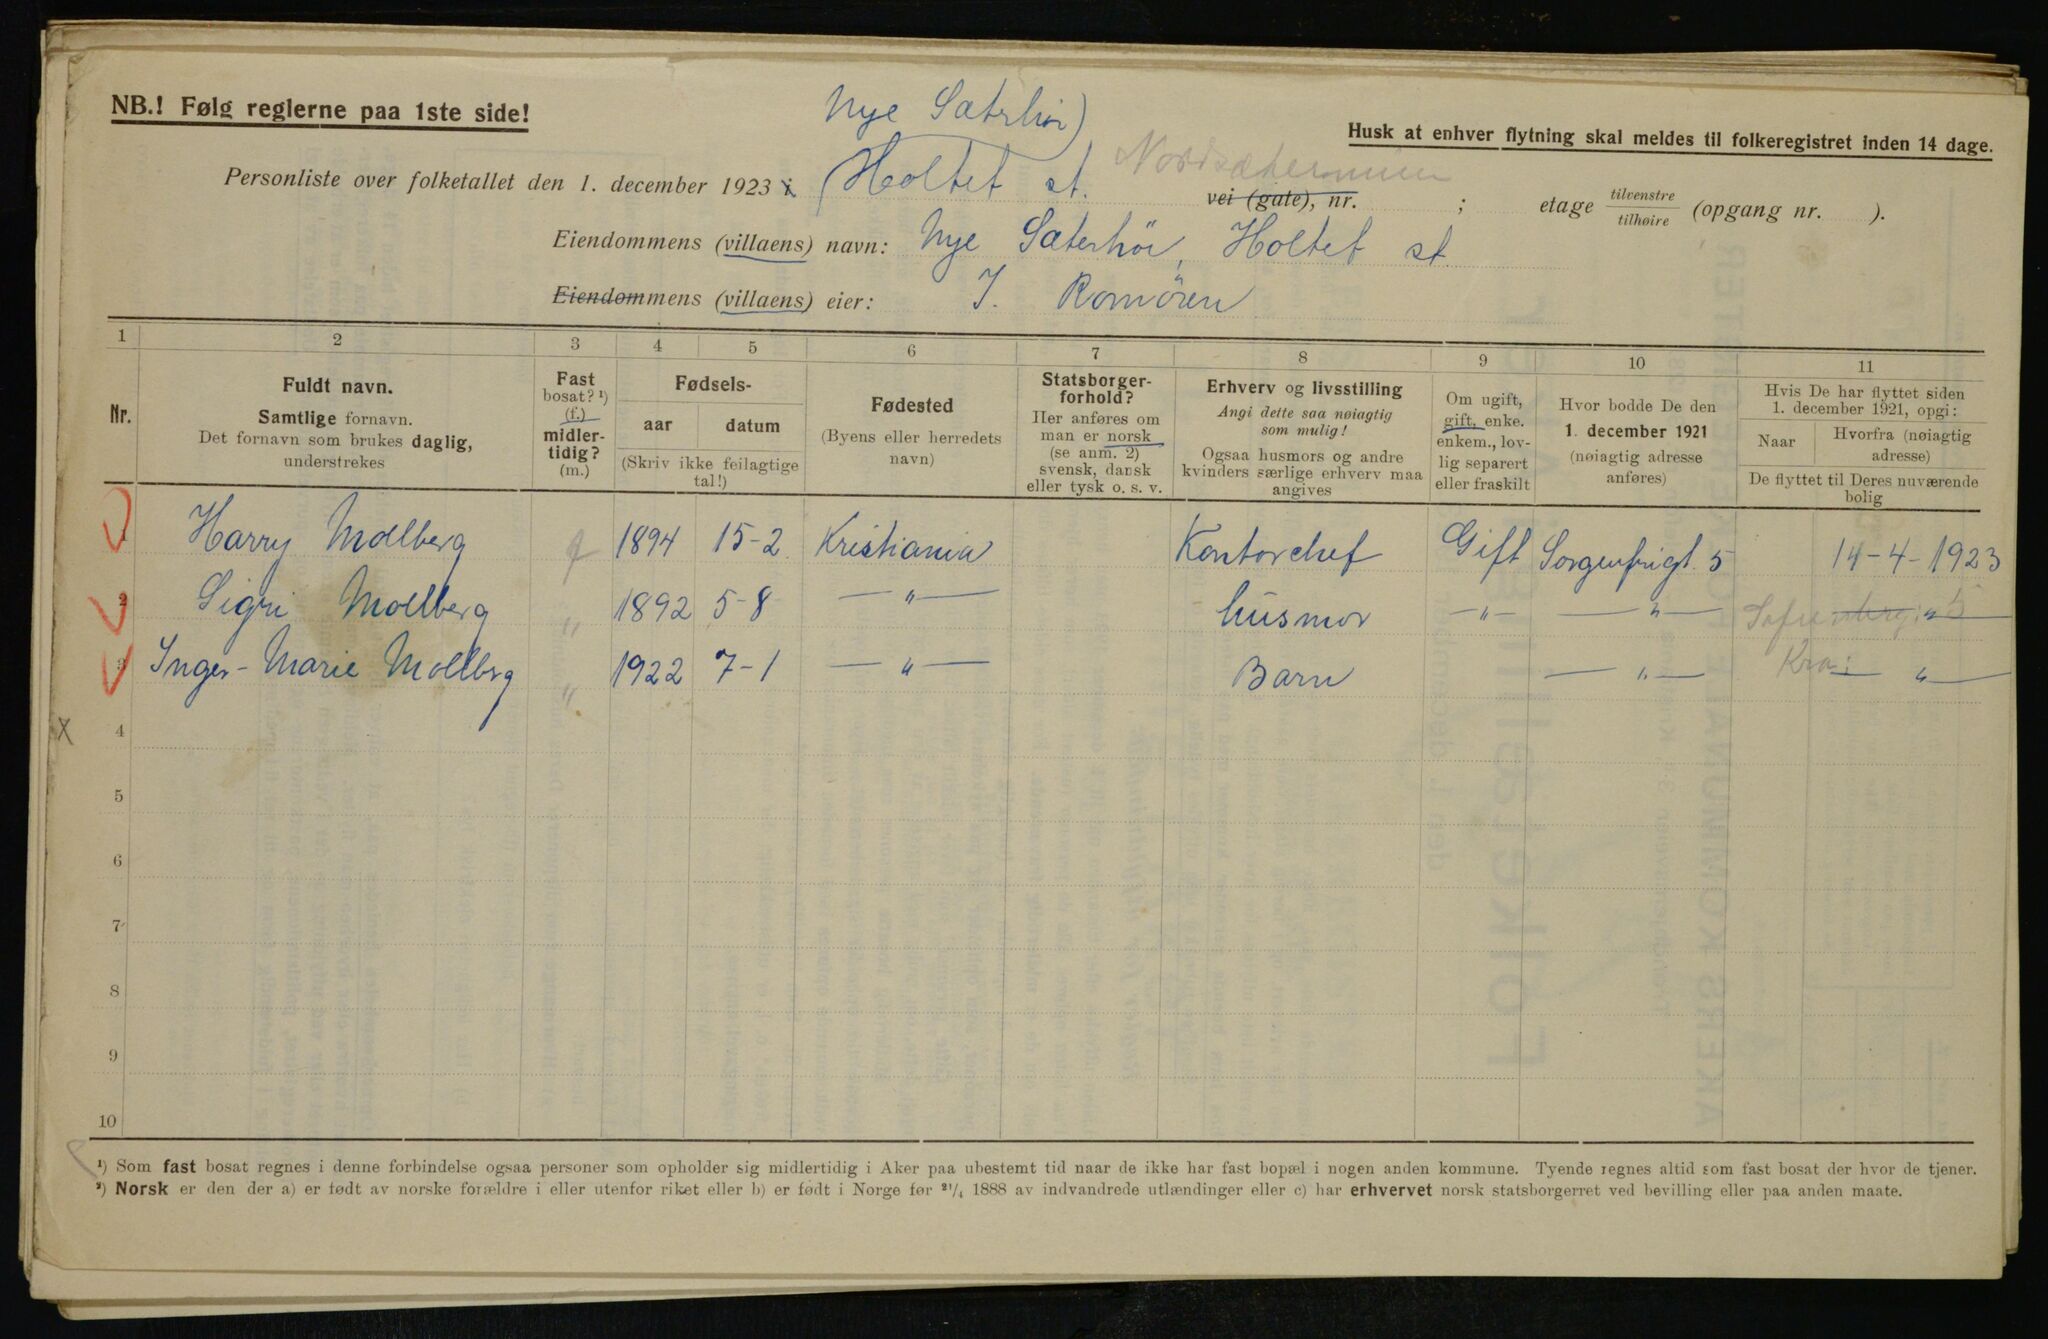 NB.! Følg reglerne paa 1ste side!
Nye Sæterhöi)
Husk at enhver flytning skal meldes til folkeregistret inden 14 dage.
Personliste over folketallet den 1. december 1923 i (Holtet st. vei (gate), nr. ; etage tilvenstre tilhøire (opgang nr. ).
Eiendommens (villaens) navn: Nye Sæterhöi, Holtet st.
Eiendommens (villaens) eier: J. Romören
1 2 3 4 5 6 7 8 9 10 11
Nr.
Fuldt navn.
Samtlige fornavn.
Det fornavn som brukes daglig,
understrekes
Fast
bosat? ¹)
(f.)
midler-
tidig?
(m.)
Fødsels-
aar datum
(Skriv ikke feilagtige
tal!)
Fødested
(Byens eller herredets
navn)
Statsborger-
forhold?
Her anføres om
man er norsk
(se anm. 2)
svensk, dansk
eller tysk o. s. v.
Erhverv og livsstilling
Angi dette saa nøiagtig
som mulig!
Ogsaa husmors og andre
kvinders særlige erhverv maa
angives
Om ugift,
gift, enke.
enkem., lov-
lig separert
eller fraskilt
Hvor bodde De den
1. december 1921
(nøiagtig adresse
anføres)
Hvis De har flyttet siden
1. december 1921, opgi:
Naar
Hvorfra (nøiagtig
adresse)
De flyttet til Deres nuværende
bolig
1 Harry Mollberg f 1894 15-2 Kristiania Kontorchef Gift Sorgenfrigt. 5 14-4-1923
2 Sigri Mollberg " 1892 5-8 —"— husmor —"— —"— —"— 5
3 Inger-Marie Mollbrg " 1922 7-1 —"— Barn —"— Kra: —"—
X
4
5
6
7
8
9
10
¹) Som fast bosat regnes i denne forbindelse ogsaa personer som opholder sig midlertidig i Aker paa ubestemt tid naar de ikke har fast bopæl i nogen anden kommune. Tyende regnes altid som fast bosat der hvor de tjener.
²) Norsk er den der a) er født av norske forældre i eller utenfor riket eller b) er født i Norge før ²¹/₄ 1888 av indvandrede utlændinger eller c) har erhvervet norsk statsborgerret ved bevilling eller paa anden maate.